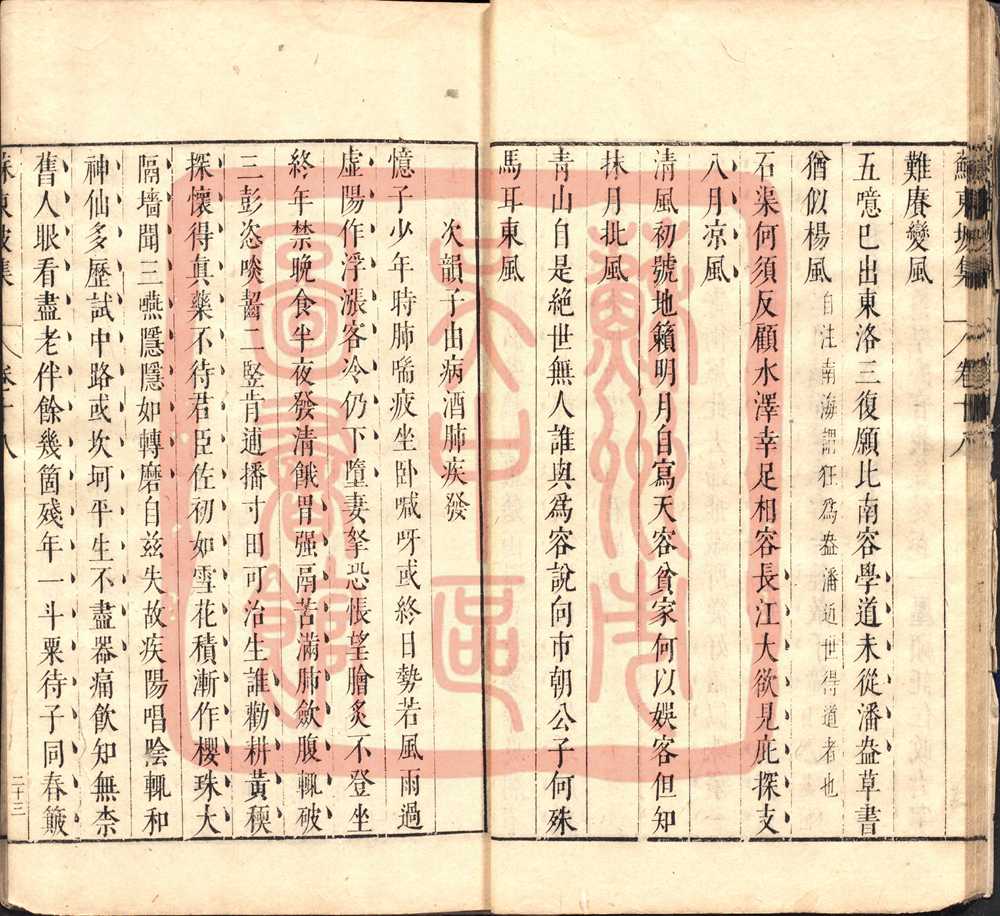 蘇東坡集 卷十八
難賡變風
五噫已出東洛三復願比南容學道未從潘盎草書
猶似楊風自注南海謂狂為盎潘近世得道者也
石渠何須反顧水澤幸足相容長江大欲見庇探支
八月凉風
清風初號地籟明月自寫天容貧家何以娛客但知
抹月批風
青山自是絕世無人誰與為容說向市朝公子何殊
馬耳東風
次韻子由病酒肺疾發
憶子少年時肺喘疲坐卧喊呀或終日勢若風雨過
虛陽作浮漲客冷仍下墮妻孥恐悵望膾炙不登坐
終年禁晚食半夜發清餓胃强鬲苦滿肺歛腹輒破
三彭恣啖齧二竪肯逋播寸田可治生誰勸耕黃穤
探懷得真藥不待君臣佐初如雪花積漸作櫻珠大
隔墻聞三嚥隱隱如轉磨自茲失故疾陽唱陰輒和
神仙多歷試中路或坎坷平生不盡器痛飲知無柰
舊人眼看盡老伴餘幾箇殘年一斗粟待子同舂簸
蘇東坡集 卷十八 二十三
蘇州市吳中區圖書館